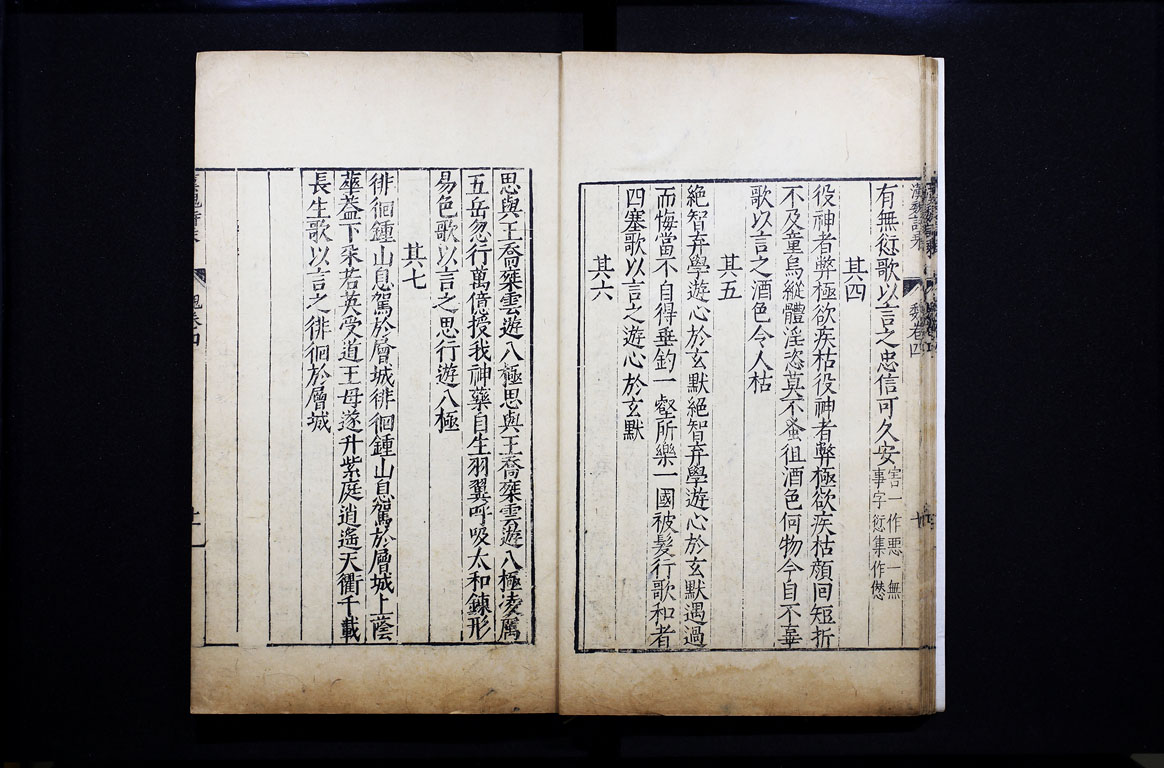 有無愆歌以言之忠信可久安 害一作惡一無
事字愆集作愆
其四
役神者弊極欲疾枯役神者弊極欲疾枯顏回短折
不及童烏縱體淫恣莫不蚤徂酒色何物今自不辜
歌以言之酒色令人枯
其五
絕智弃學遊心於玄默絕智弃學遊心於玄默遇過
而悔當不自得垂釣一壑所樂一國被髮行歌和者
四塞歌以言之遊心於玄默
其六
思與王喬椉雲遊八極思與王喬椉雲遊八極凌厲
五岳忽行萬億授我神藥自生羽翼呼吸太和鍊形
易色歌以言之思行遊八極
其七
徘徊鍾山息駕於層城徘徊鍾山息駕於層城上蔭
華蓋下采若英受道王母遂升紫庭逍遙天衢千載
長生歌以言之徘徊於層城